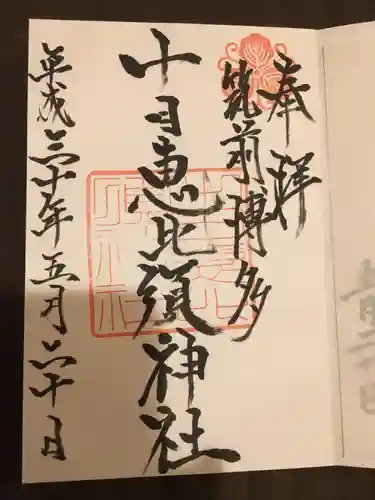 奉拝
筑前博多
十日恵比須神社
平成三十年五月六十日